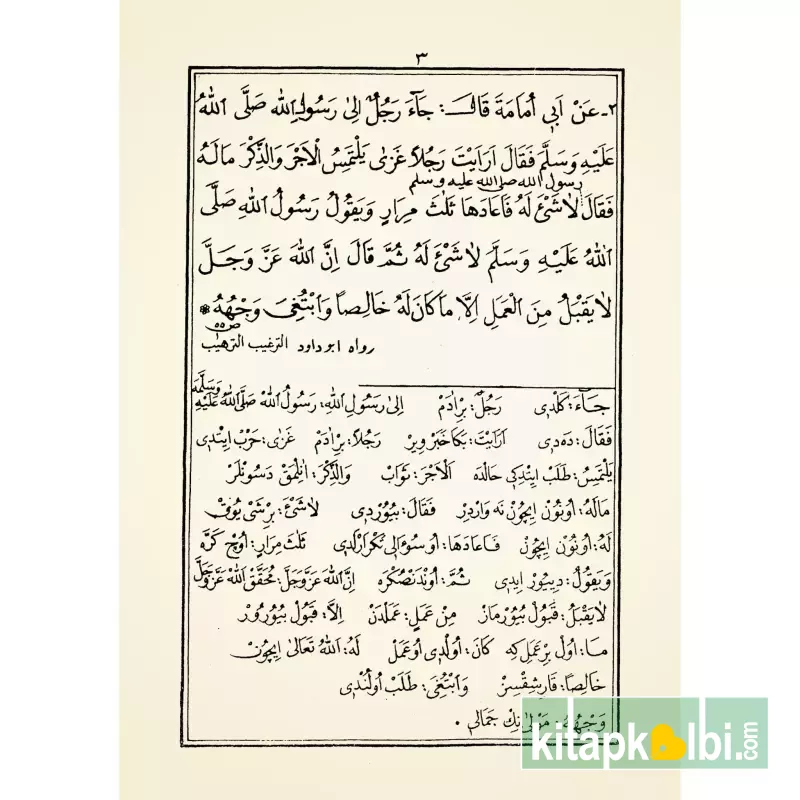 ٣
٢ـ عَنْ اَبٖى اُمَامَةَ قَالَ: جَآءَ رَجُلٌ اِلٰى رَسُولِ اللهِ صَلَّى اللهُ
عَلَيْهِ وَسَلَّمَ فَقَالَ اَرَاَيْتَ رَجُلاً غَزٰى يَلْتَمِسُ الْاَجْرَ وَالذِّكْرَ مَالَهُ
رسول الله صلى الله عليه وسلم
فَقَالَ لاَشَىْءَ لَهُ فَاَعَادَهَا ثَلٰثَ مِرَارٍ وَيَقُولُ رَسُولُ اللهِ صَلَّى
اللهُ عَلَيْهِ وَسَلَّمَ لاَشَىْءَ لَهُ ثُمَّ قَالَ اِنَّ اللهَ عَزَّ وَجَلَّ
لاَيَقْبَلُ مِنَ الْعَمَلِ اِلاَّ مَاكَانَ لَهُ خَالِصاً وَابْتُغِىَ وَجْهُهُ *
رواه ابو داود الترغيب الترهيب ص ٥٥
جَآءَ: كَلْدٖى رَجُلٌ: بِرْاٰدَمْ اِلٰى رَسُولِ اللهِ: رَسُولُ اللهْ صَلَّى اللهُ عَلَيْهِ وَسَلَّمَهْ
فَقَالَ: دَهدٖى اَرَاَيْتَ: بَكَاخَبَرْوِيرْ رَجُلاً: بِرْاٰدَمْ غَزٰى: حَرْبْ اِيتْدٖى
يَلْتَمِسُ: طَلَبْ اِيتْدِكٖى حَالْدَه اَلْاَجْرَ: ثَوَابْ وَالذِّكْرَ: اٰكِلْمَقْ دَسُونْلَرْ
مَالَهُ: اُونُونْ اِيچُونْ نَه وَارْدِرْ فَقَالَ: بُيُورْدٖى لاَشَىْءَ: بِرْشَىْ يُوقْ
لَهُ: اُونُونْ اِيچُونْ فَاَعَادَهَا: اُوسُؤَالٖى تَكْرَارْلَدٖى ثَلٰثَ مِرَارٍ: اُوچْ كَرَّه
وَيَقُولُ: دِيُيورْ اِيدٖى ثُمَّ: اُونْدَنْصُكْرَه اِنَّ اللهَ عَزَّوَجَلَّ: مُحَقَّقْ اللهْ عَزَّوَجَلَّ
لاَيَقْبَلُ: قَبُولْ بُيُورْمَازْ مِنْ عَمَلٍ: عَمَلْدَنْ اِلاَّ: قَبُولْ بُيُورُورْ
مَا: اُولْ بِرْعَمَلِ كِه كَانَ: اُولْدٖى اُوعَمَلْ لَهُ: اللهُ تَعَالٰى اِيچُونْ
خَالِصاً: قَارِشِقْسِزْ وَابْتُغِىَ: طَلَبْ اُولُنْدٖى
وَجْهُهُ: مَوْلٰىنِكْ جَمَالٖى.
kitapkalbi.com